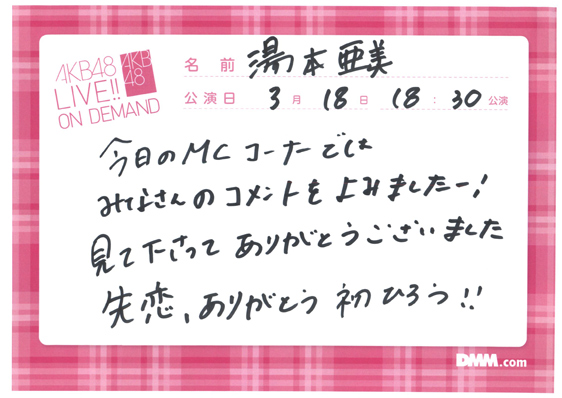 AKB48
LIVE!!
ON DEMAND
AKB
48
名 前 湯本亜美
公演日 3月18日 18:30公演
今日のMCコーナーでは
みなさんのコメントをよみましたー!
見て下さって ありがとうございました
失恋、ありがとう 初ひろう!!
DMM.com